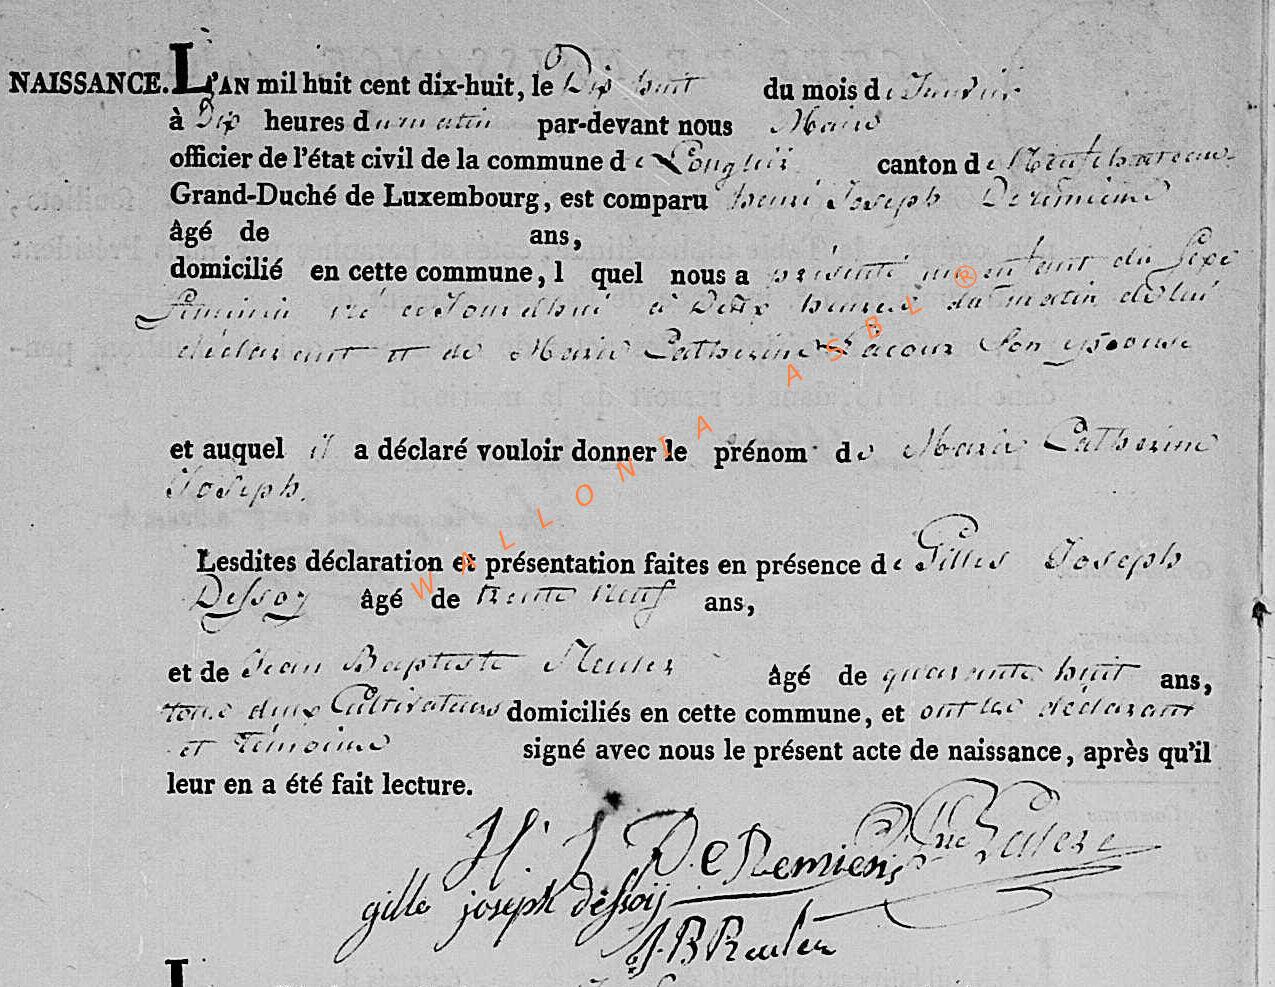 NAISSANCE. L'AN mil huit cent dix-huit, le Dix huit du mois de Janvier
à Dix heures du matin par-devant nous Maire
officier de l'état civil de la commune de Longlier canton de Neufchateau
Grand-Duché de Luxembourg, est comparu henri Joseph Deremiens
âgé de ans,
domicilié en cette commune, l quel nous a présenté un enfant du Sexe
feminin né ce Jourdhui à Deux heures du matin de lui
déclarant et de Marie Catherine Lacour Son epouse
et auquel il a déclaré vouloir donner le prénom de Marie Catherine
Joseph.
Lesdites déclaration et présentation faites en présence de Gilles Joseph
Dessoy âgé de trente neuf ans,
et de Jean Baptiste Reuler âgé de quarante huit ans,
tous deux Cultivateurs domiciliés en cette commune, et ont les déclarant
et témoins signé avec nous le présent acte de naissance, après qu'il
leur en a été fait lecture.
H. J. DeRemiens
gille joseph dessoij
J. B Reuler
WALLONIA ASBL ®